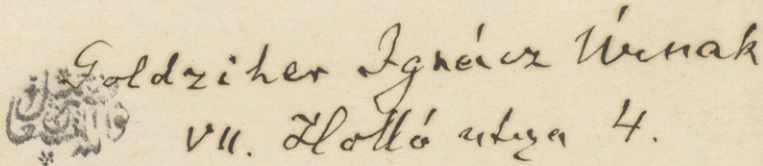 Goldziher Ignácz Úrnak
VII. Holló utcza 4.